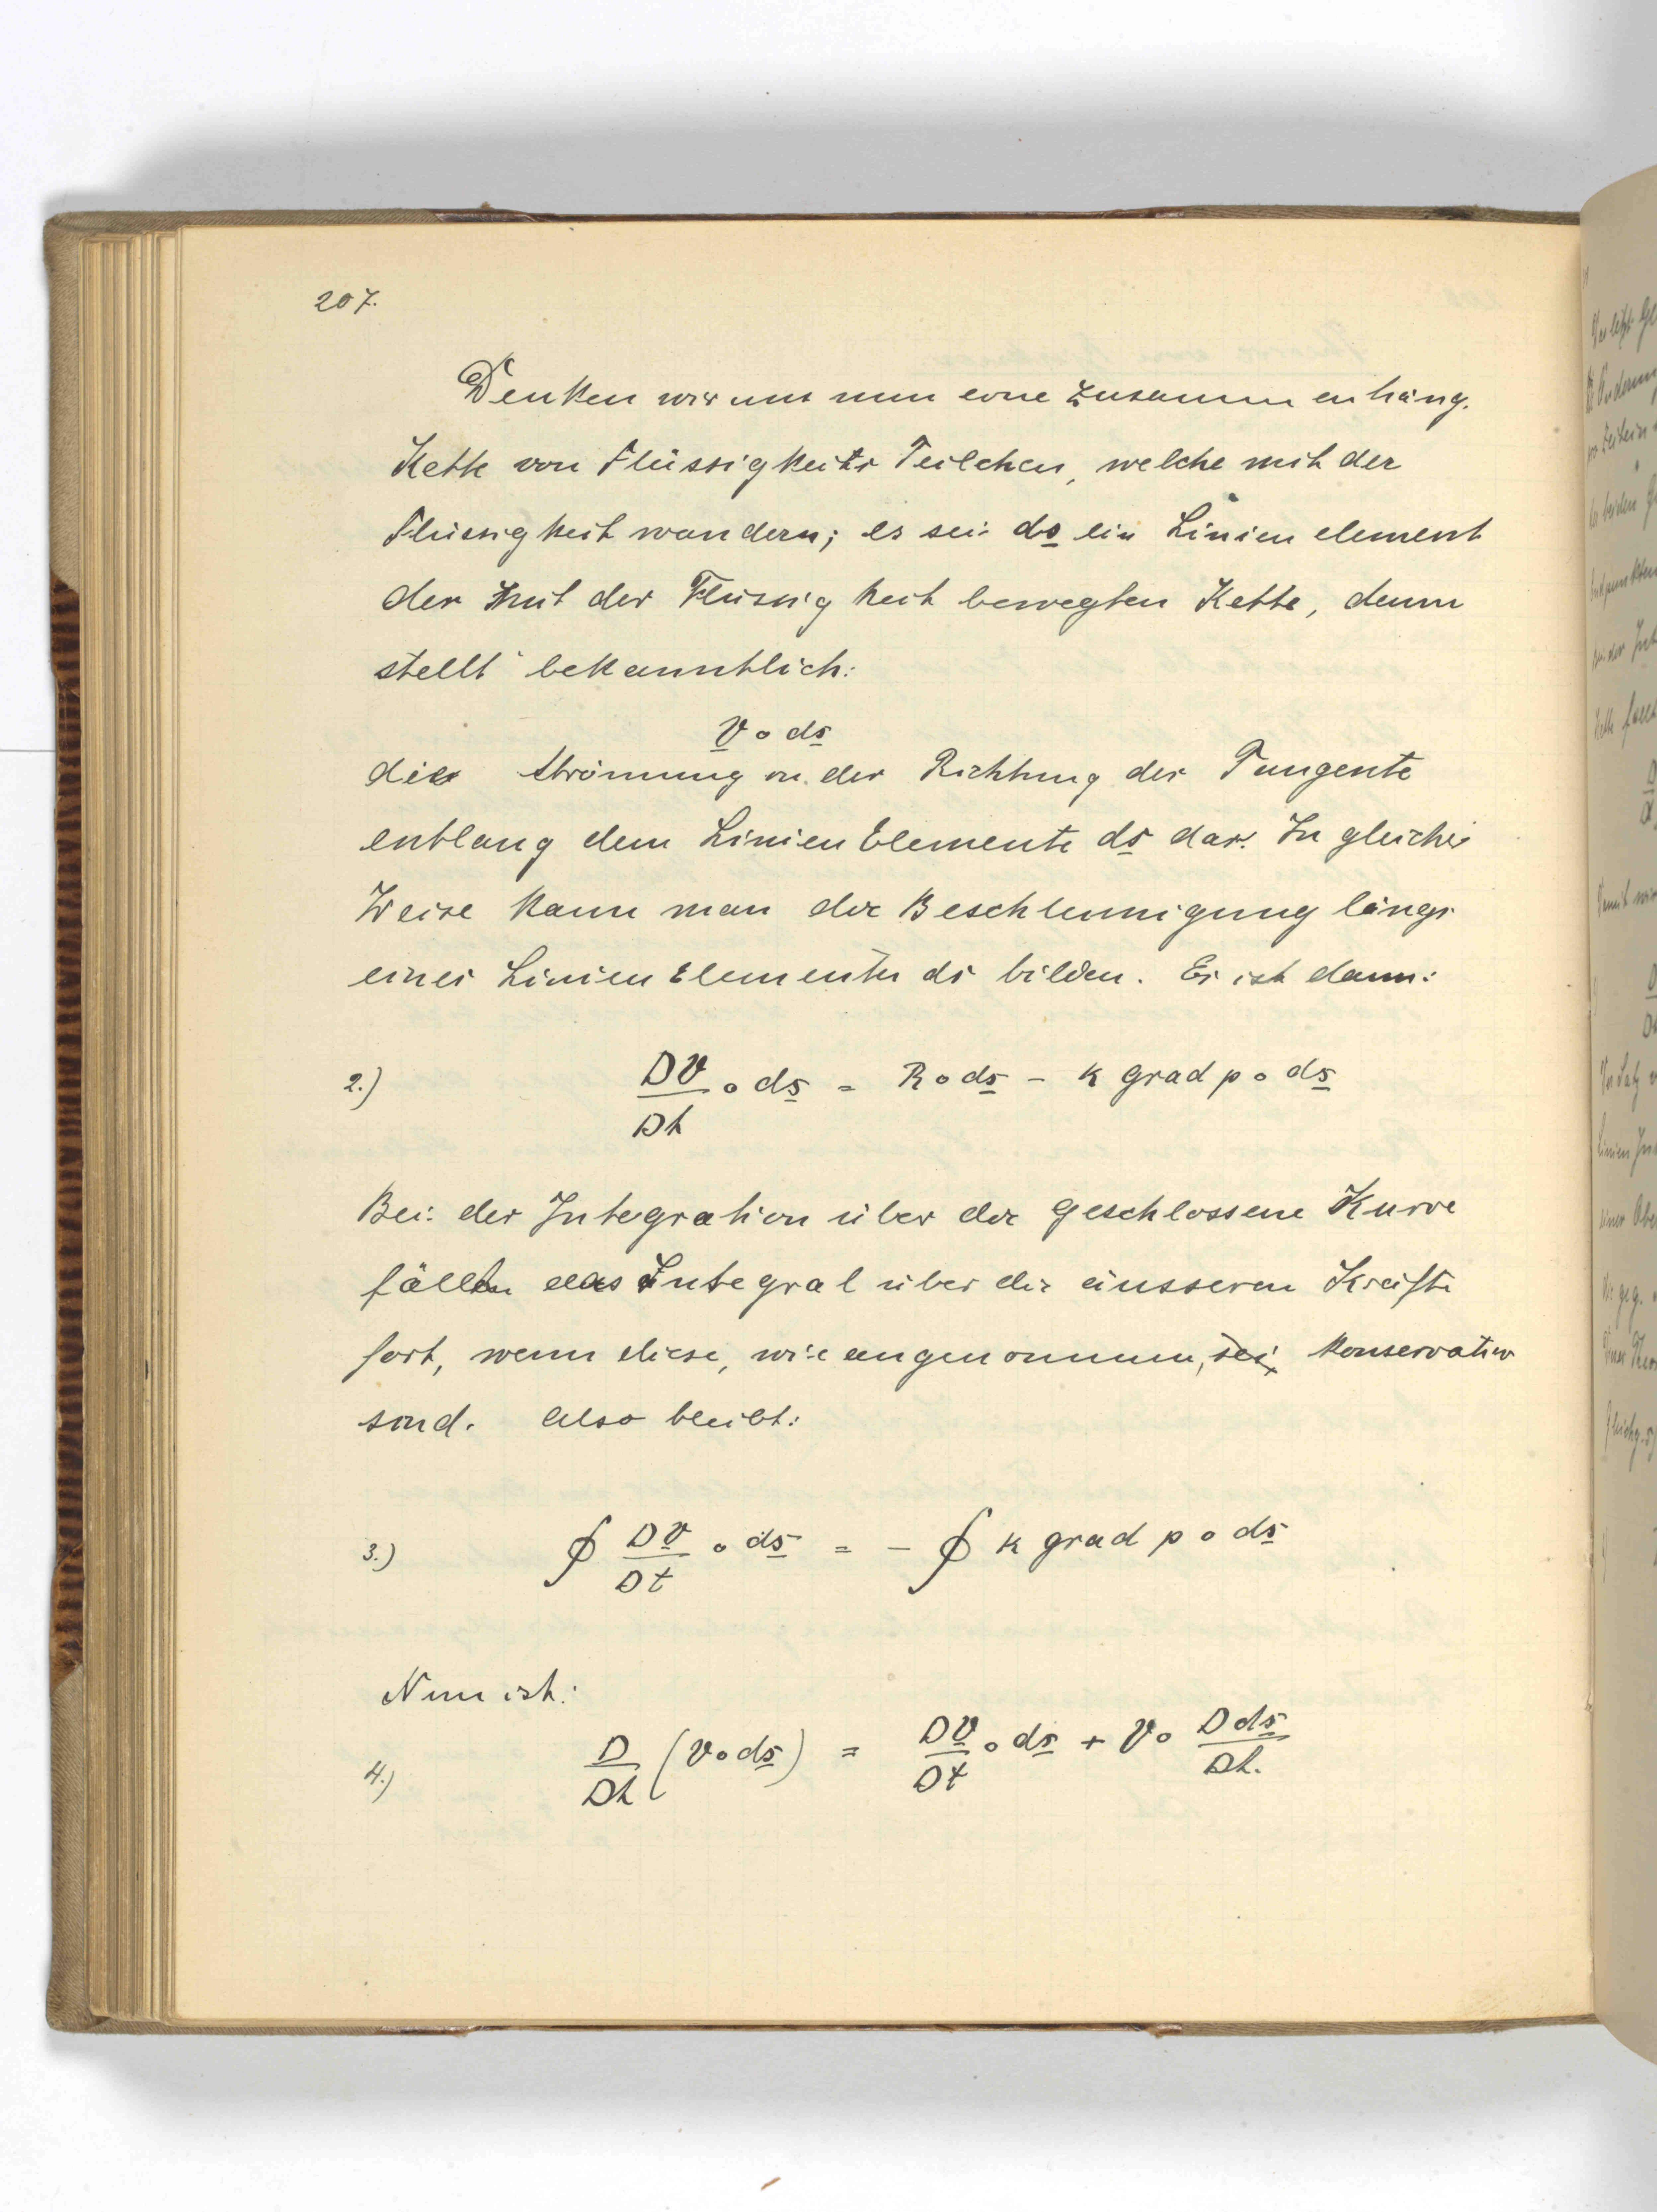 207.
Denken wir uns nun eine zusammenhäng.
Kette von Flüssigkeits Teilchen, welche mit der
Flüssigkeit wandern; es sei ds ein Linien element
der mit der Flüssigkeit bewegten Kette, dann
stellt bekanntlich:
v ∘ ds
die Strömung in der Richtung der Tangente
entlang dem Linien Elemente ds dar. In gleicher
Weise kann man die Beschleunigung längs
eines Linien Elementes ds bilden. Es ist dann:
2.) Dv/Dt ∘ ds = R ∘ ds − k grad p ∘ ds
Bei der Integration über die geschlossene Kurve
fällt das Integral über die äusseren Kräfte
fort, wenn diese, wie angenommen, sei konservativ
sind. Also bleibt:
3.) ∮ Dv/Dt ∘ ds = − ∮ k grad p ∘ ds
Nun ist:
4.) D/Dt (v ∘ ds) = Dv/Dt ∘ ds + v ∘ D ds/Dt.